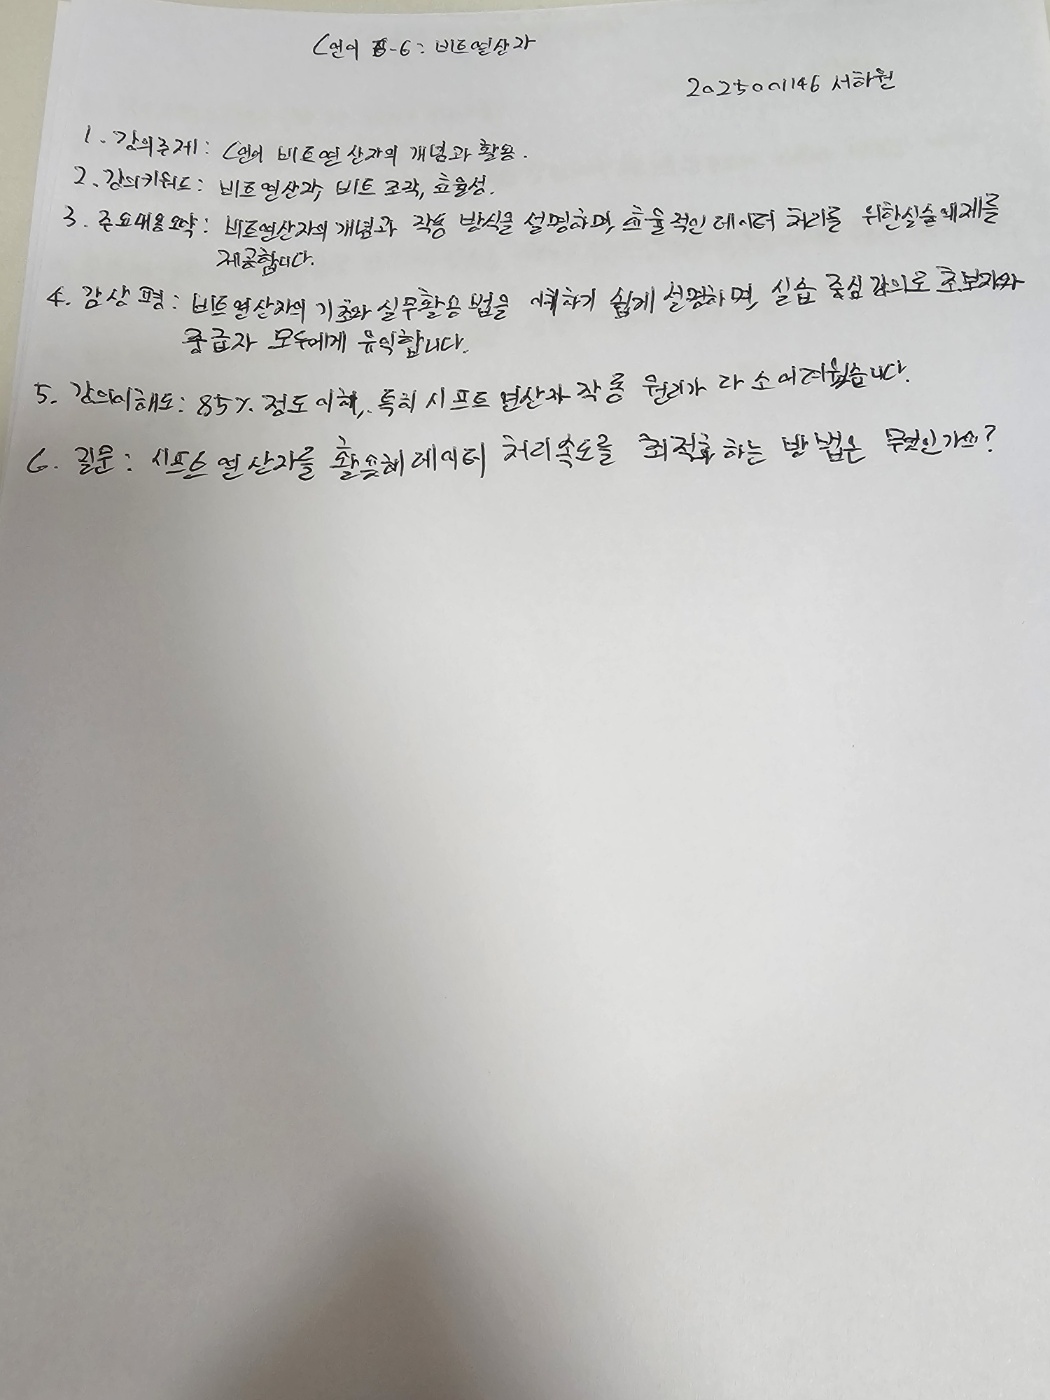 C언어 8-6: 비트연산자
2025001146 서하원
1. 강의주제: C언어 비트연산자의 개념과 활용.
2. 강의키워드: 비트연산자, 비트 조작, 효율성.
3. 주요내용요약: 비트연산자의 개념과 작동 방식을 설명하며, 효율적인 데이터 처리를 위한실습예제를
제공합니다.
4. 감상평: 비트연산자의 기초와 실무활용법을 이해하기 쉽게 설명하며, 실습 중심 강의로 초보자와
중급자 모두에게 유익합니다.
5. 강의이해도: 85% 정도 이해, 특히 시프트 연산자 작동 원리가 다소 어려웠습니다.
6. 질문: 시프트 연산자를 활용해 데이터 처리속도를 최적화하는 방법은 무엇인가요?